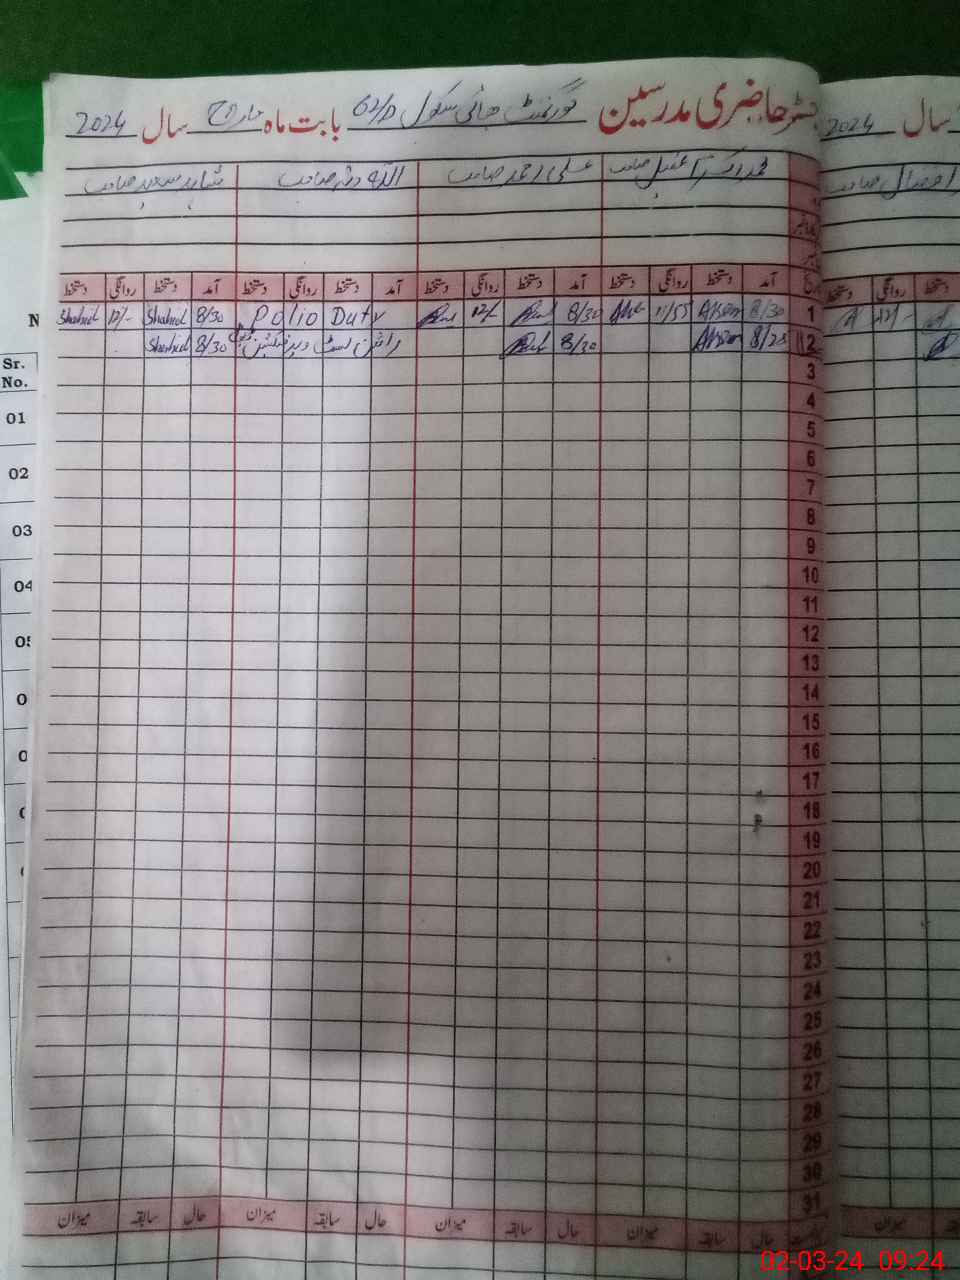 رجسٹر حاضری مدرسین گورنمنٹ ہائی سکول 62/D بابت ماہ مارچ سال 2024
سال 2024
محمد اکرم عقیل صاحب علی احمد صاحب اللہ دتہ صاحب شاہد سعید صاحب
افضال صاحب
آمد دستخط روانگی دستخط آمد دستخط روانگی دستخط آمد دستخط روانگی دستخط آمد دستخط روانگی دستخط
دستخط روانگی دستخط
1 8/30 Akram 11/55 8/30 12/- Polio Duty 8/30 Shahid 12/- Shahid
12/-
2 8/25 Akram 8/30 راشن لسٹ ویریفکیشن ڈیوٹی 8/30 Shahid
3
4
5
6
7
8
9
10
11
12
13
14
15
16
17
18
19
20
21
22
23
24
25
26
27
28
29
30
31
حال سابقہ میزان حال سابقہ میزان حال سابقہ میزان حال سابقہ میزان
میزان
Sr.
No.
01
02
03
04
02-03-24 09:24